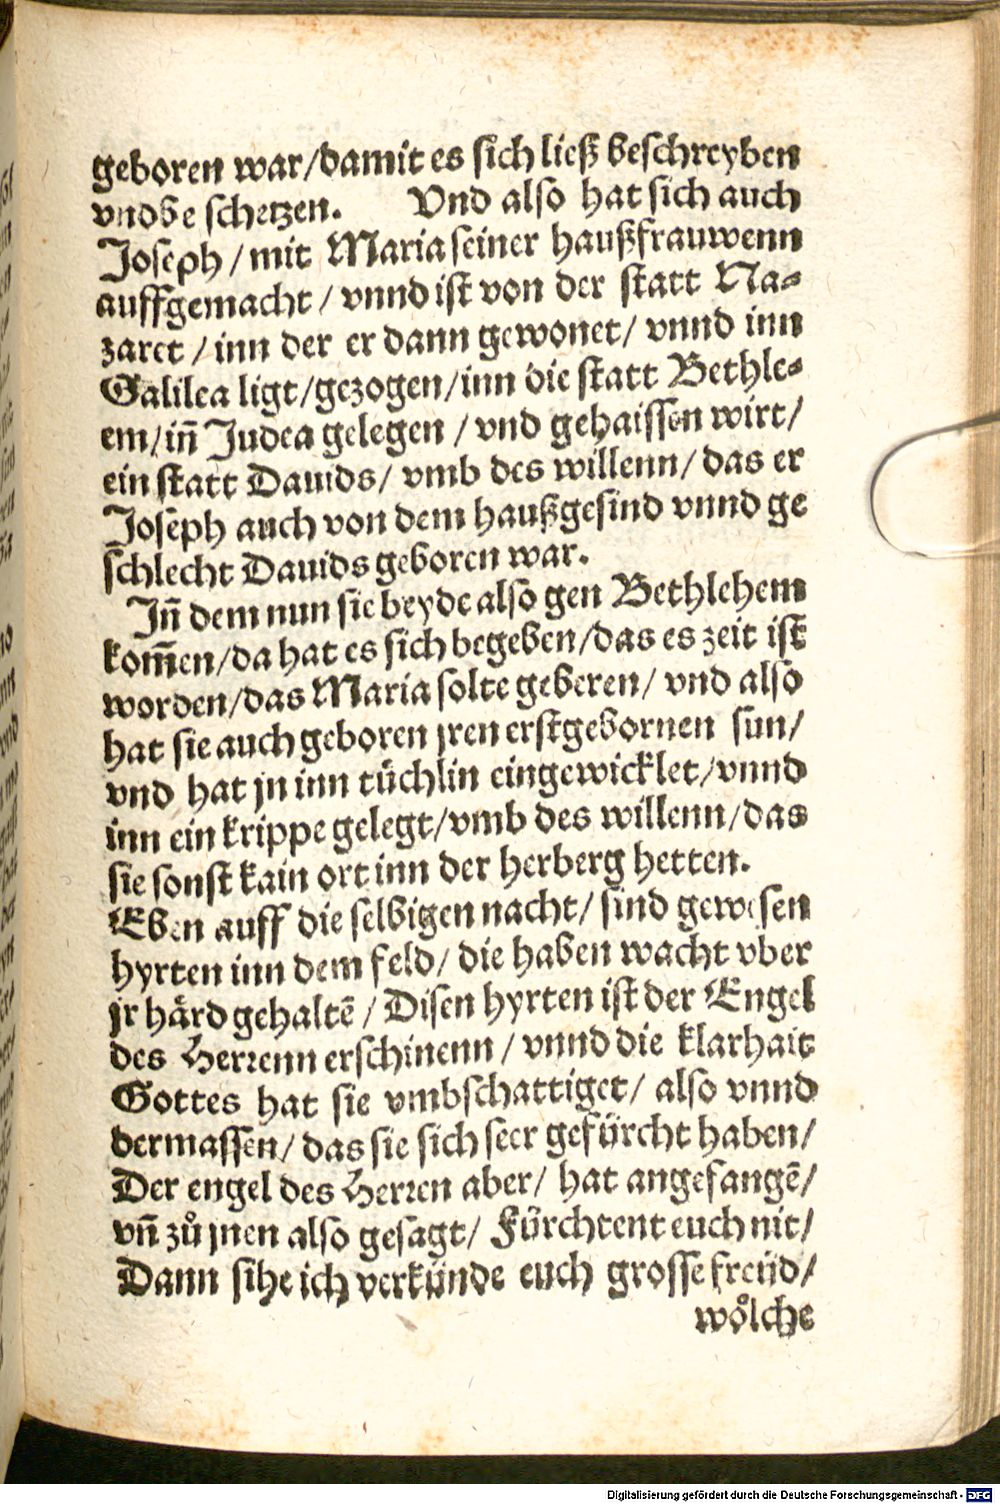 geboren war/damit es sich ließ beschreyben
vnd be schetzen. Vnd also hat sich auch
Joseph / mit Maria seiner haußfrauwenn
auffgemacht / vnnd ist von der statt Na⸗
zaret / inn der er dann gewonet/ vnnd inn
Galilea ligt/gezogen/inn die statt Bethle⸗
em/inñ Judea gelegen / vnd gehaissen wirt/
ein statt Dauids/ vmb des willenn/ das er
Joseph auch von dem haußgesind vnnd ge
schlecht Dauids geboren war.
Jnñ dem nun sie beyde also gen Bethlehem
kom̃en/da hat es sich begeben/das es zeit ist
worden/das Maria solte geberen/ vnd also
hat sie auch geboren jren erstgebornen sun/
vnd hat jn inn tüchlin eingewicklet/vnnd
inn ein krippe gelegt/vmb des willenn/das
sie sonst kain ort inn der herberg hetten.
Eben auff die selbigen nacht/ sind gewesen
hyrten inn dem feld/ die haben wacht vber
jr härd gehaltē / Disen hyrten ist der Engel
des Herrenn erschinenn / vnnd die klarhait
Gottes hat sie vmbschattiget/ also vnnd
dermassen/ das sie sich seer gefürcht haben/
Der engel des Herren aber/ hat angefangē/
vñ zů jnen also gesagt/ Fürchtent euch nit/
Dann sihe ich verkünde euch grosse freüd/
wölche
Digitalisierung gefördert durch die Deutsche Forschungsgemeinschaft - DFG